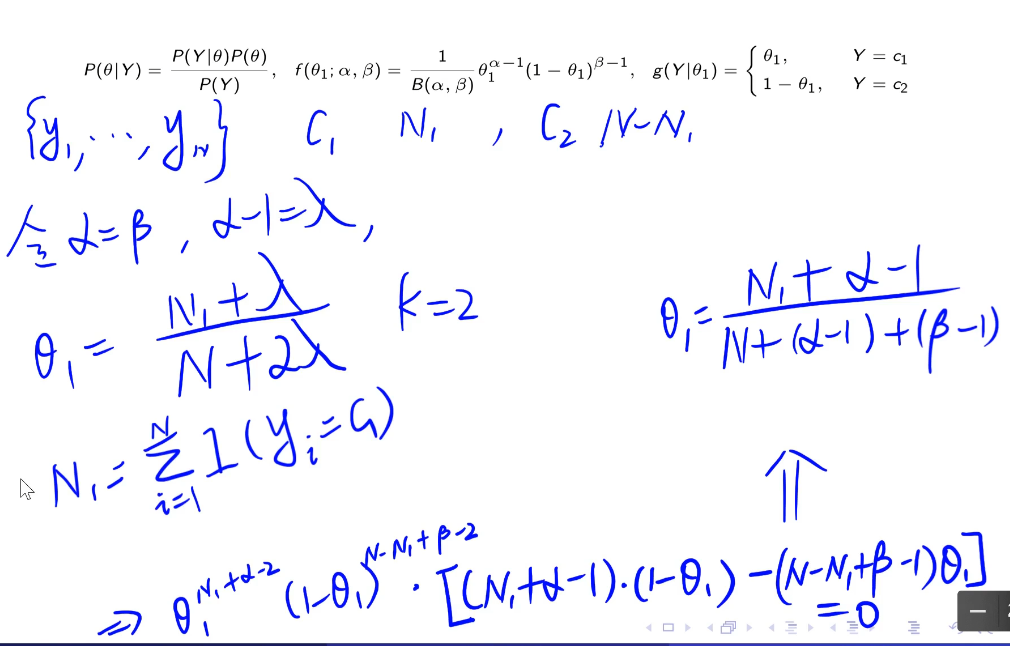 P(θ|Y) = P(Y|θ)P(θ) / P(Y), f(θ₁; α, β) = 1 / B(α, β) θ₁^{α−1}(1 − θ₁)^{β−1}, g(Y|θ₁) = { θ₁, Y = c₁
1 − θ₁, Y = c₂
{y₁, ..., y_N} C₁ N₁ , C₂ N-N₁
令 α=β , α-1=λ,
θ₁ = (N₁+λ) / (N+2λ) k=2
θ₁ = (N₁+α-1) / (N+(α-1)+(β-1))
N₁ = ∑_{i=1}^{N} 1(y_i=C₁)
⇑
⇒ θ₁^{N₁+α-2} (1-θ₁)^{N-N₁+β-2} · [(N₁+α-1)·(1-θ₁) - (N-N₁+β-1)θ₁]
=0